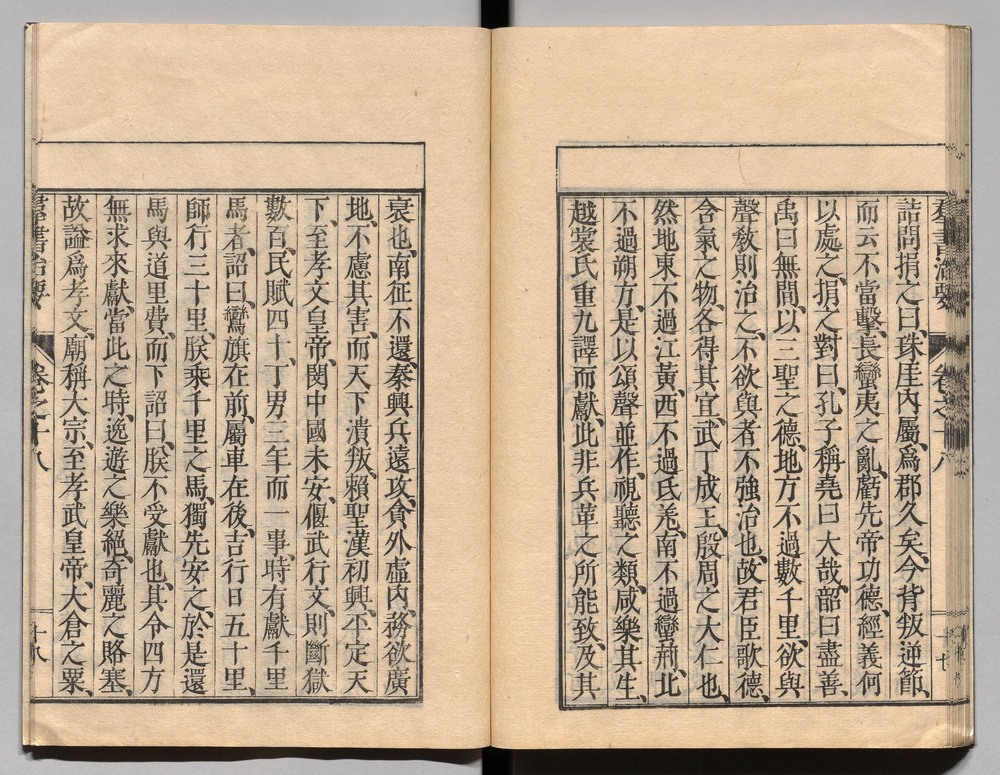 羣書治要 卷之十八 十七
詰問捐之曰、珠厓內屬、爲郡久矣、今背叛逆節、
而云不當擊、長蠻夷之亂、虧先帝功德、經義何
以處之、捐之對曰、孔子稱堯曰大哉、韶曰盡善、
禹曰無間、以三聖之德、地方不過數千里、欲與
聲敎則治之、不欲與者不強治也、故君臣歌德、
含氣之物、各得其宜、武丁成王、殷周之大仁也、
然地東不過江黃、西不過氐羌、南不過蠻荊、北
不過朔方、是以頌聲並作、視聽之類、咸樂其生、
越裳氏重九譯而獻、此非兵革之所能致、及其
衰也、南征不還、秦興兵遠攻、貪外虛內、務欲廣
地、不慮其害、而天下潰叛、賴聖漢初興、平定天
下、至孝文皇帝、閔中國未安、偃武行文、則斷獄
數百、民賦四十、丁男三年而一事、時有獻千里
馬者、詔曰、鸞旗在前、屬車在後、吉行日五十里、
師行三十里、朕乘千里之馬、獨先安之、於是還
馬與道里費、而下詔曰、朕不受獻也、其令四方
無求來獻、當此之時、逸遊之樂絕、奇麗之賂塞、
故謚爲孝文、廟稱大宗、至孝武皇帝、大倉之粟、
羣書治要 卷之十八 十八